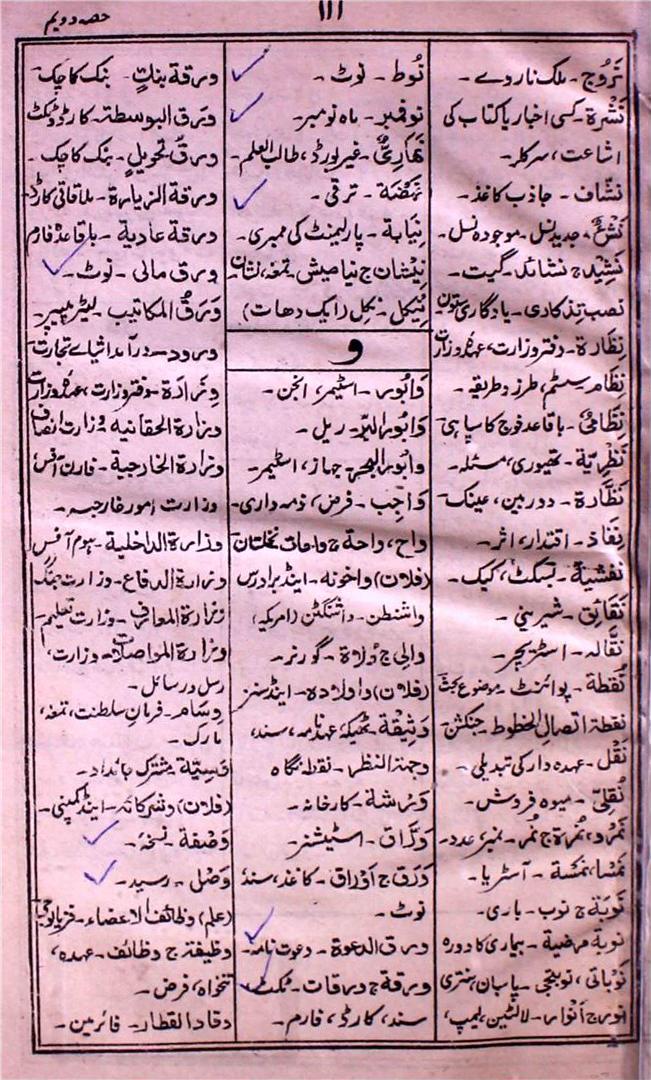 ۱۱۱
حصہ دویم
نَرُوج - ملک ناروے -
نَشْرة - کسی اخبار یا کتاب کی
اشاعت، سرکلر -
نشّاف - جاذب کاغذ -
جدید نسل - موجودہ نسل -
نَشِید ج نشائد - گیت -
نصب تذکاری - یادگاری ستون
نِظارة - دفتر وزارت، عہدہ وزارت
نِظام سسٹم، طرز و طریقہ -
نِظامیؒ - باقاعدہ فوج کا سپاہی
نَظْریّة - تھیوری، مسئلہ -
نَظّارة - دوربین، عینک -
نِفاذ - اقتدار، اثر -
بسکٹ، کیک -
شیرینی -
نقّالہ - اسٹریچر -
نُقطة - پوائنٹ - موضوع بحث
نقطة اتصال الخطوط - جنکشن -
نَقْل - عہدہ دار کی تبدیلی -
نُقلِیّ - میوہ فروش -
نُمرة ج نُمر - نمبر، عدد -
نَمْسا، نَمْسَة - آسٹریا -
نَوبَة ج نوب - باری -
نوبة مرضیة - بیماری کا دورہ
نوباتی، نوبتجی - پاسبان، سنتری
نور ج انوار - لالٹین، لیمپ،
نُوط - نوٹ -
نوفمبر - ماہ نومبر -
نَهاریٌّ - غیر بورڈر، طالب العلم -
نَهضَة - ترقی -
نِیَابة - پارلیمنٹ کی ممبری -
نِیشان ج نیاشین - تمغہ، نشان
نیکل - نکل (ایک دھات)
و
وَابُور - اسٹیمر، انجن -
وَابُور البرّ - ریل -
وابور البحر - جہاز، اسٹیمر -
وَاجِب - فرض، ذمہ داری -
واح، واحة ج واحات نخلستان
(فلان) واخوتہ - اینڈ برادرس
واشنطن - واشنگٹن (امریکہ)
والی ج ولاة - گورنر -
(فلان) واولادہ - اینڈ سنز
وَثِیقَة - ٹھیکہ، عہدنامہ، سند،
وجهة النظر - نقطہ نگاہ
وَرْشَة - کارخانہ -
وَرّاق - اسٹیشنر -
وَرَق ج اَوْراق - کاغذ، سند
نوٹ -
ورق الدعوة - دعوت نامہ -
ورقة ج ورقات - ٹکٹ،
سند، کارڈ، فارم -
ورقة بنك - بنک کا چک -
ورق البوسطة - کارڈ و ٹکٹ
ورقُ تحویلٍ - بنک کا چک -
ورقة الزیارة - ملاقاتی کارڈ -
ورقة عادیة - باقاعدہ فارم
ورق مالی - نوٹ -
وَرَقُ المکاتیب - لیٹر پیپر -
ورود - درآمد اشیائے تجارت -
وِزَارَة - دفتر وزارت، عہدہ وزارت
وزارة الحقانیه وزارت انصاف
وزارة الخارجیة - فارن آفس،
وزارت امور خارجہ -
وزارة الداخلیة - ہوم آفس
وزارة الدفاع - وزارت جنگ
وزارة المعارف - وزارت تعلیم -
وزارة المواصلات - وزارت،
رسل و رسائل -
وِسَام - فرمانِ سلطنت، تمغہ،
مارک -
مشترک جائداد -
(فلان) وشرکائہ - اینڈ کمپنی -
وَصْفَة نسخہ -
وَصْل - رسید -
(علم) وظائف الاعضاء - فزیالوجی
وظیفة ج وظائف - عہدہ،
تنخواہ، فرض -
وقاد القطار - فائرمین -